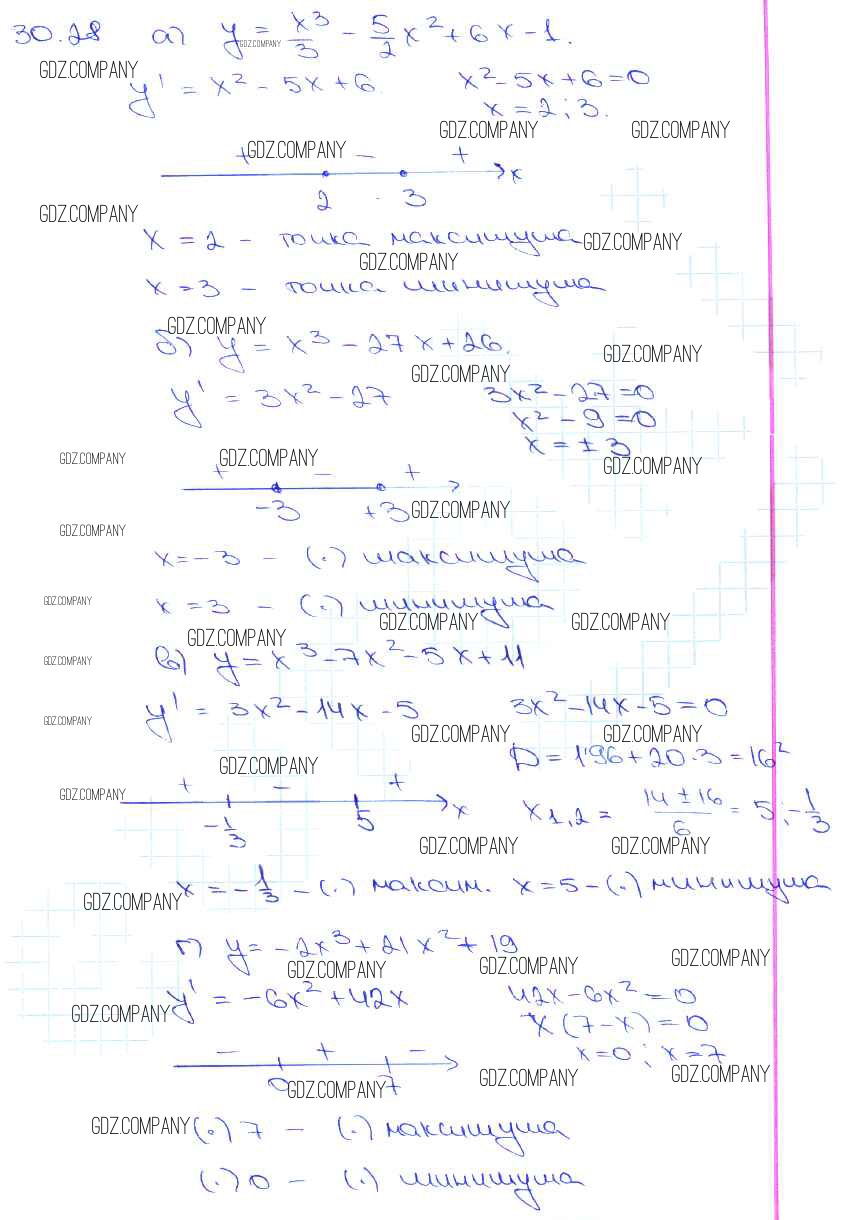 30.28 а) y = x³/3 - 5/2 x² + 6x - 1.
GDZ.COMPANY
GDZ.COMPANY
y' = x² - 5x + 6. x² - 5x + 6 = 0
x = 2; 3.
GDZ.COMPANY GDZ.COMPANY
+ GDZ.COMPANY - +
x
2 3
GDZ.COMPANY
x = 2 - точка максимума GDZ.COMPANY
GDZ.COMPANY
x = 3 - точка минимума
GDZ.COMPANY
б) y = x³ - 27x + 26.
GDZ.COMPANY
GDZ.COMPANY
y' = 3x² - 27 3x² - 27 = 0
x² - 9 = 0
x = ± 3
GDZ.COMPANY GDZ.COMPANY GDZ.COMPANY
+ - +
-3 +3 GDZ.COMPANY
GDZ.COMPANY
x = -3 - (.) максимума
GDZ.COMPANY
x = 3 - (.) минимума
GDZ.COMPANY GDZ.COMPANY
GDZ.COMPANY
в) y = x³ - 7x² - 5x + 11
GDZ.COMPANY
y' = 3x² - 14x - 5 3x² - 14x - 5 = 0
GDZ.COMPANY GDZ.COMPANY GDZ.COMPANY
D = 196 + 20·3 = 16²
GDZ.COMPANY
+ - +
GDZ.COMPANY x
-1/3 5 x1,2 = (14 ± 16)/6 = 5; -1/3
GDZ.COMPANY GDZ.COMPANY
x = -1/3 - (.) максим. x = 5 - (.) минимума
GDZ.COMPANY
г) y = -2x³ + 21x² + 19
GDZ.COMPANY GDZ.COMPANY GDZ.COMPANY
y' = -6x² + 42x 42x - 6x² = 0
GDZ.COMPANY
x(7 - x) = 0
x = 0; x = 7
- + -
0 7
GDZ.COMPANY GDZ.COMPANY GDZ.COMPANY
GDZ.COMPANY (.) 7 - (.) максимума
(.) 0 - (.) минимума